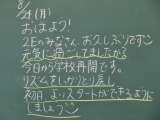 8/4(月)
おはよう!
2Eのみなさん、お久しぶりです
元気に過ごしてましたか?
今日から学校再開です。
リズムをしっかりと戻し
初日、よいスタートができるように
しましょう